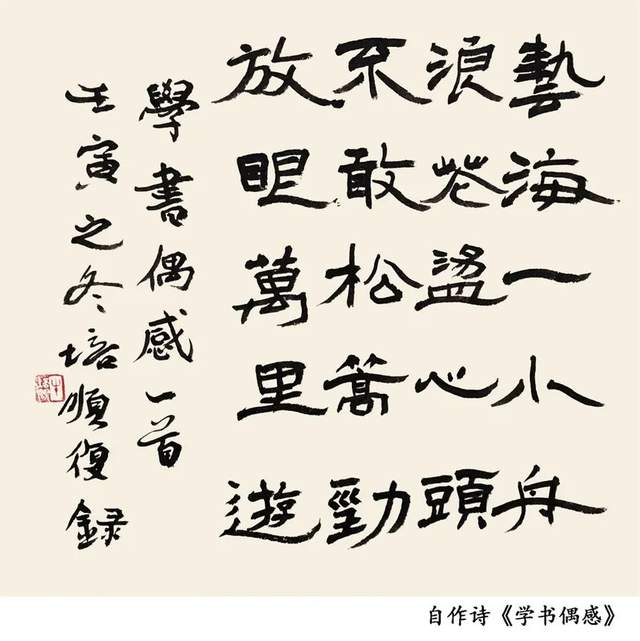 藝海一小舟
浪花盪心頭
不敢松篙勁
放眼萬里遊
學書偶感一首
壬寅之冬培順復錄
自作诗《学书偶感》